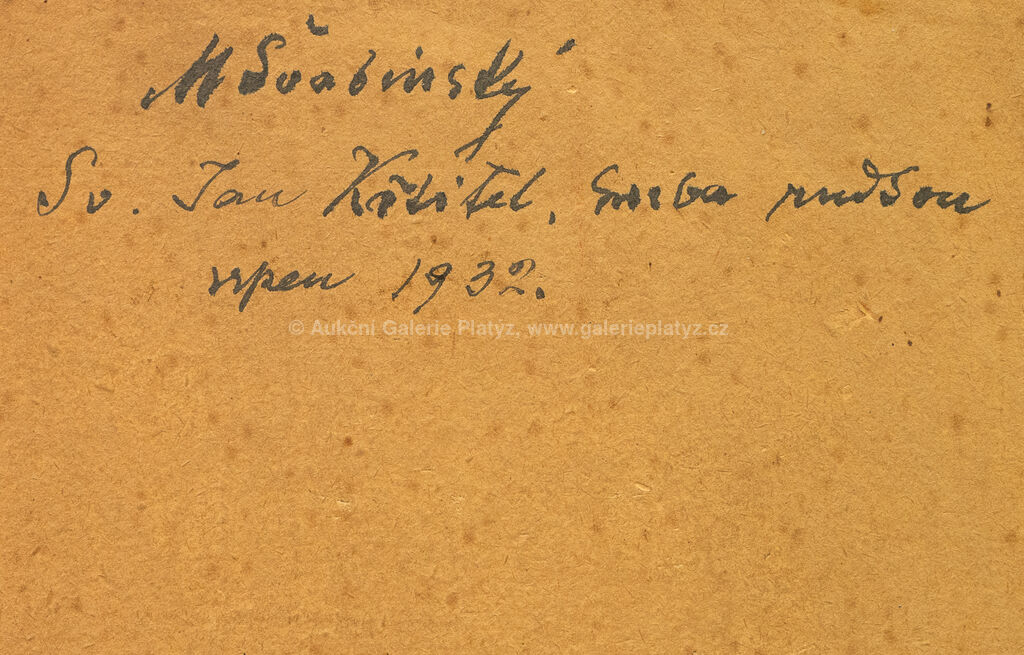 M Švabinský
Sv. Jan Křtitel, kresba rudkou
srpen 1932.
© Aukční Galerie Platýz, www.galerieplatyz.cz